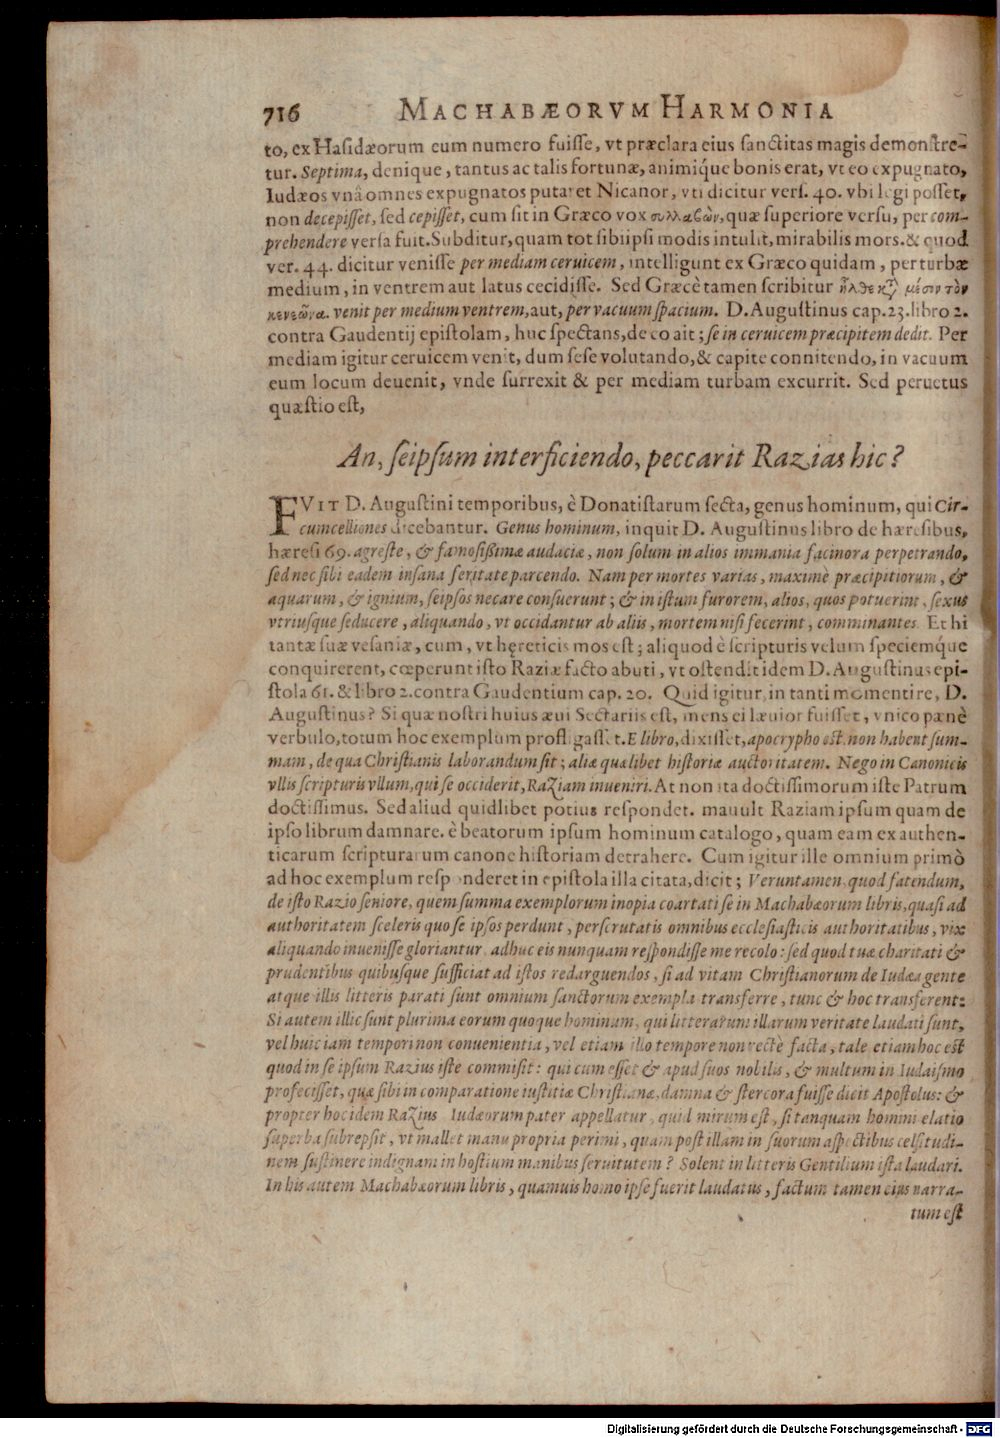 716 MACHABÆORVM HARMONIA
to, ex Hasidæorum eum numero fuiſſe, vt præclara eius ſanctitas magis demonſtre-
tur. Septima, denique, tantus ac talis fortunæ, animiq́ue bonis erat, vt eo expugnato,
Iudæos vnà omnes expugnatos putaret Nicanor, vti dicitur verſ. 40. vbi legi poſſet,
non decepiſſet, ſed cepiſſet, cum ſit in Græco vox συλλαβὼν, quæ ſuperiore verſu, per com-
prehendere verſa fuit. Subditur, quam tot ſibi ipſi modis intulit, mirabilis mors. & quod
ver. 44. dicitur veniſſe per mediam ceruicem, intelligunt ex Græco quidam, per turbæ
medium, in ventrem aut latus cecidiſſe. Sed Græcè tamen ſcribitur ἦλθε κτ̃ μέσον τὸν
κενεῶνα. venit per medium ventrem, aut, per vacuum ſpacium. D. Auguſtinus cap. 23. libro 2.
contra Gaudentij epiſtolam, huc ſpectans, de eo ait; ſe in ceruicem præcipitem dedit. Per
mediam igitur ceruicem venit, dum ſeſe volutando, & capite connitendo, in vacuum
eum locum deuenit, vnde ſurrexit & per mediam turbam excurrit. Sed peruetus
quæſtio eſt,
An, ſeipſum interficiendo, peccarit Razias hic?
FVIT D. Auguſtini temporibus, è Donatiſtarum ſecta, genus hominum, qui Cir-
cumcelliones dicebantur. Genus hominum, inquit D. Auguſtinus libro de hæreſibus,
hæreſi 69. agreſte, & famoſiſſimæ audaciæ, non ſolum in alios immania facinora perpetrando,
ſed nec ſibi eadem inſana feritate parcendo. Nam per mortes varias, maximè præcipitiorum, &
aquarum, & ignium, ſeipſos necare conſuerunt; & in iſtum furorem, alios, quos potuerint, ſexus
vtriuſque ſeducere, aliquando, vt occidantur ab aliis, mortem niſi fecerint, comminantes. Et hi
tantæ ſuæ veſaniæ, cum, vt hęreticis mos eſt; aliquod è ſcripturis velum ſpeciemq́ue
conquirerent, cœperunt iſto Raziæ facto abuti, vt oſtendit idem D. Auguſtinus epi-
ſtola 61. & libro 2. contra Gaudentium cap. 20. Quid igitur, in tanti momenti re, D.
Auguſtinus? Si quæ noſtri huius æui Sectariis eſt, mens ei læuior fuiſſet, vnico pænè
verbulo, totum hoc exemplum profligaſſet. E libro, dixiſſet, apocrypho eſt, non habent ſum-
mam, de qua Chriſtianis laborandum ſit; aliæ quælibet hiſtoriæ auctoritatem. Nego in Canonicis
vllis ſcripturis vllum, qui ſe occiderit, Raziam inueniri. At non ita doctiſſimorum iſte Patrum
doctiſſimus. Sed aliud quidlibet potius reſpondet. mauult Raziam ipſum quam de
ipſo librum damnare. è beatorum ipſum hominum catalogo, quam eam ex authen-
ticarum ſcripturarum canone hiſtoriam detrahere. Cum igitur ille omnium primò
ad hoc exemplum reſponderet in epiſtola illa citata, dicit; Veruntamen, quod fatendum,
de iſto Razio ſeniore, quem ſumma exemplorum inopia coartati ſe in Machabæorum libris, quaſi ad
authoritatem ſceleris quo ſe ipſos perdunt, perſcrutatis omnibus eccleſiaſticis authoritatibus, vix
aliquando inueniſſe gloriantur, adhuc eis nunquam reſpondiſſe me recolo: ſed quod tuæ charitati &
prudentibus quibuſque ſufficiat ad iſtos redarguendos, ſi ad vitam Chriſtianorum de Iudæa gente
atque illis litteris parati ſunt omnium ſanctorum exempla transferre, tunc & hoc transferent:
Si autem illic ſunt plurima eorum quoque hominum, qui litterarum illarum veritate laudati ſunt,
vel huic iam tempori non conuenientia, vel etiam illo tempore non rectè facta, tale etiam hoc eſt
quod in ſe ipſum Razius iſte commiſit: qui cum eſſet & apud ſuos nobilis, & multum in Iudaiſmo
profeciſſet, quæ ſibi in comparatione iuſtitiæ Chriſtianæ, damna & ſtercora fuiſſe dicit Apoſtolus: &
propter hoc idem Razius Iudæorum pater appellatur, quid mirum eſt, ſi tanquam homini elatio
ſuperba ſubrepſit, vt mallet manu propria perimi, quam poſt illam in ſuorum aſpectibus celſitudi-
nem ſuſtinere indignam in hoſtium manibus ſeruitutem? Solent in litteris Gentilium iſta laudari.
In his autem Machabæorum libris, quamuis homo ipſe fuerit laudatus, factum tamen eius narra-
tum eſt
Digitalisierung gefördert durch die Deutsche Forschungsgemeinschaft - DFG